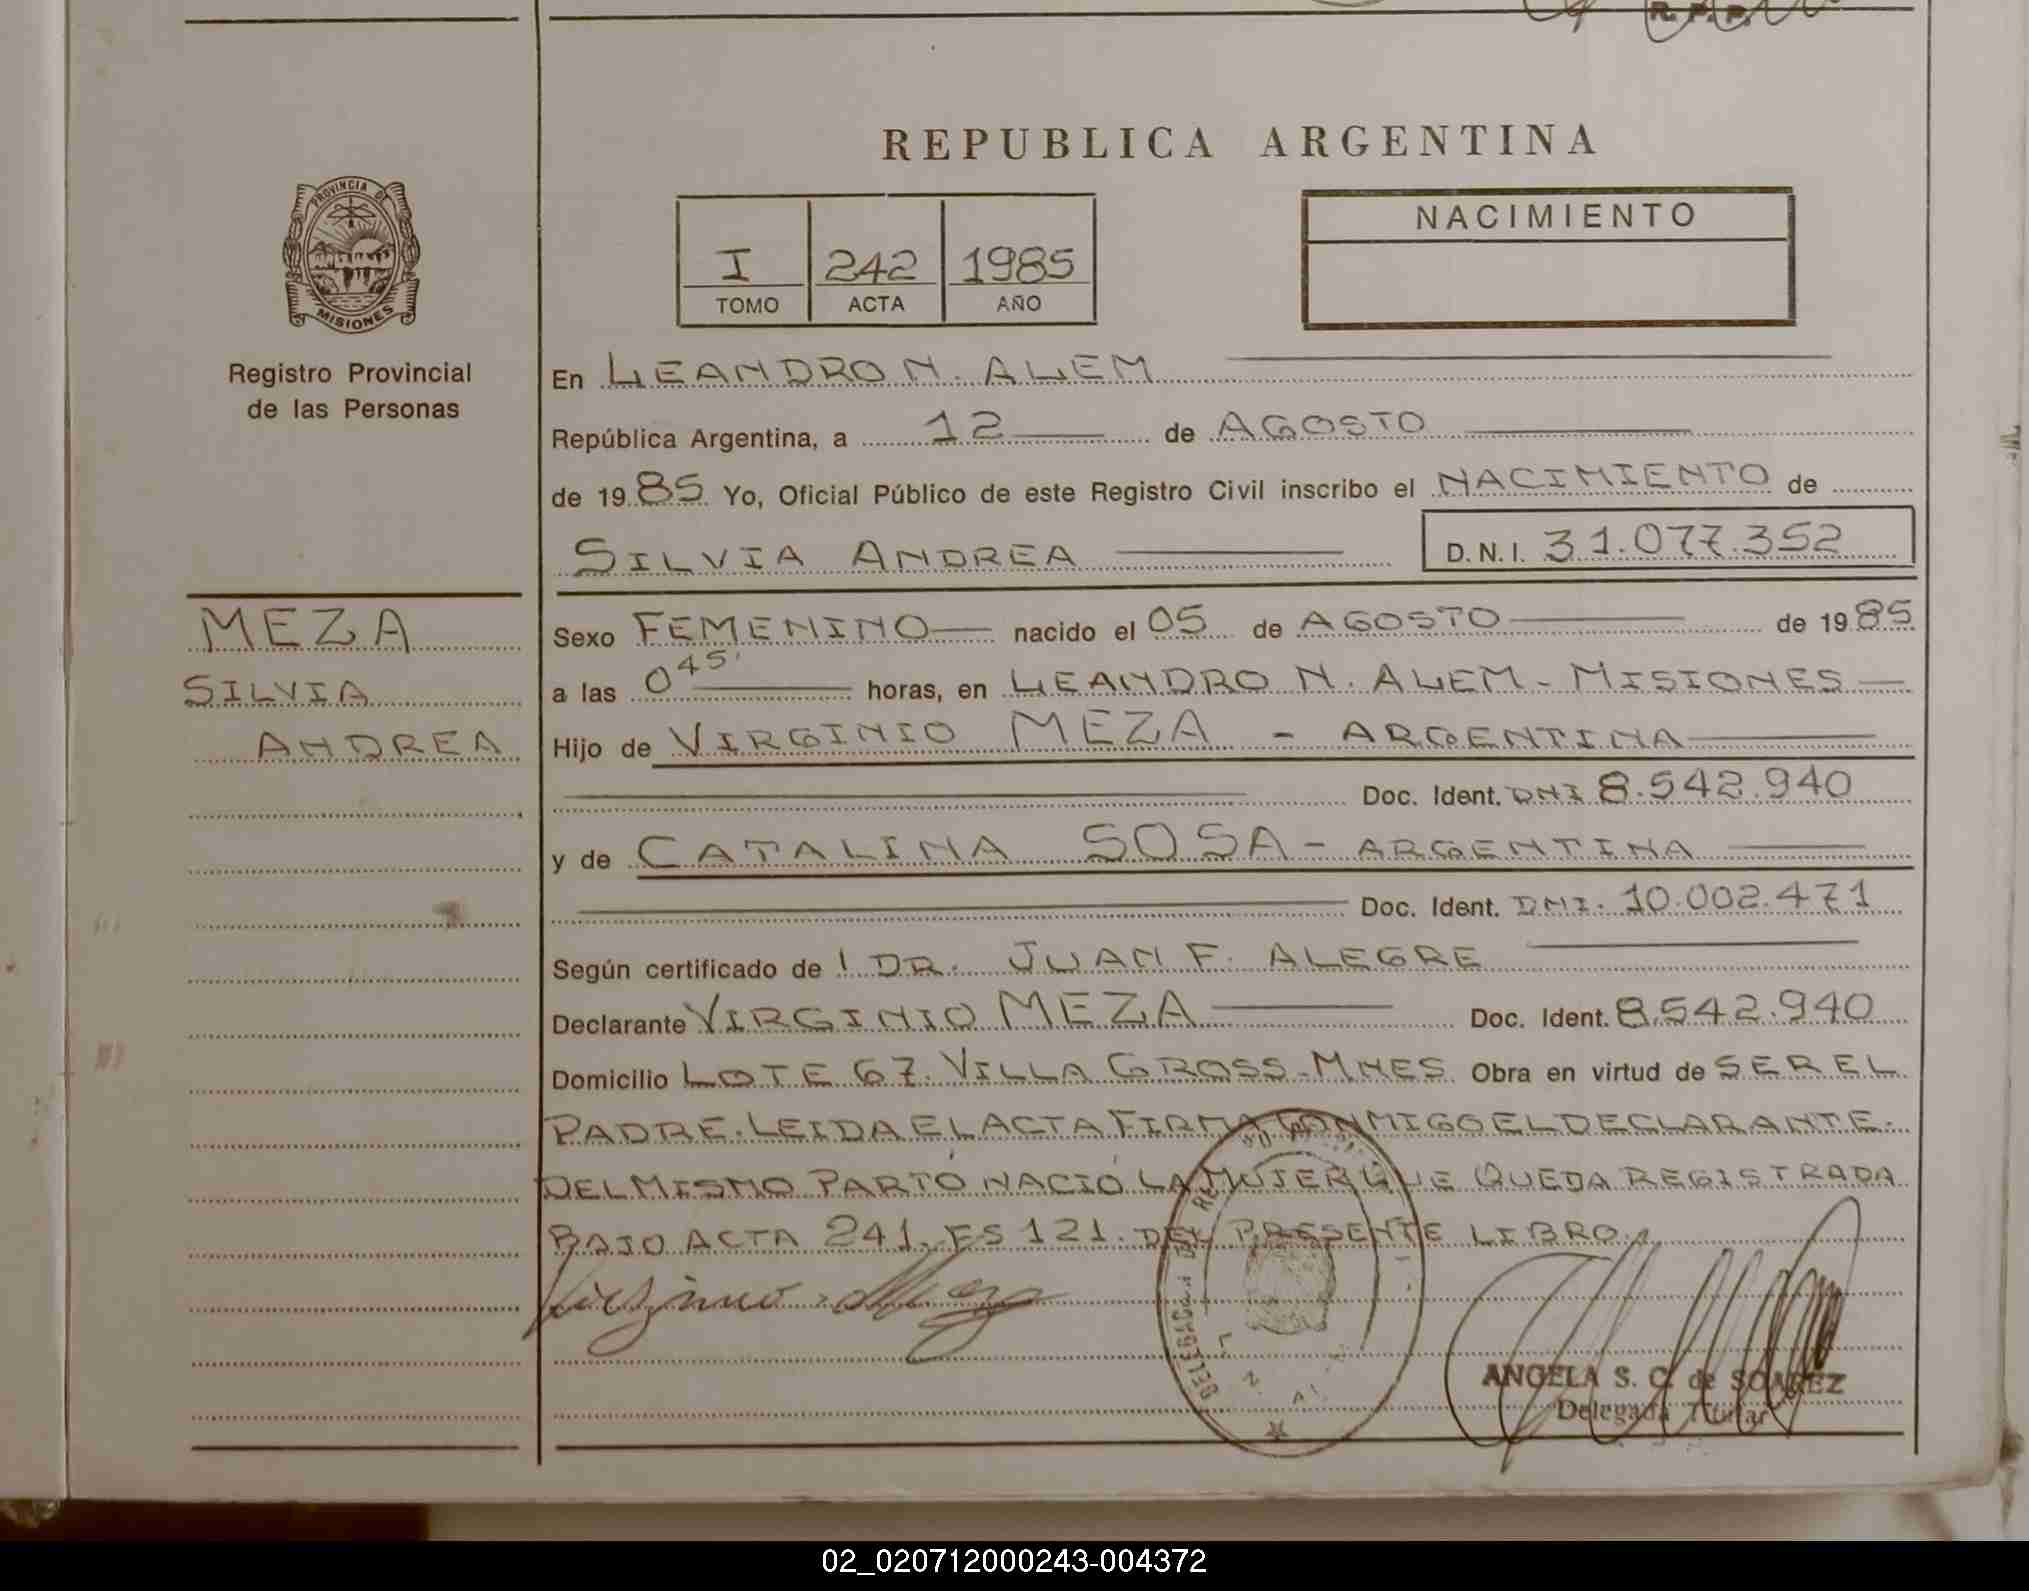 R. P. P.
REPUBLICA ARGENTINA
PROVINCIA DE
MISIONES
Registro Provincial
de las Personas
I 242 1985
TOMO ACTA AÑO
NACIMIENTO
En LEANDRO N. ALEM
República Argentina, a 12 de AGOSTO
de 19 85 Yo, Oficial Público de este Registro Civil inscribo el NACIMIENTO de
SILVIA ANDREA D. N. I. 31.077.352
MEZA
SILVIA
ANDREA
Sexo FEMENINO nacido el 05 de AGOSTO de 19 85
a las 0 45' horas, en LEANDRO N. ALEM - MISIONES
Hijo de VIRGINIO MEZA - ARGENTINA
Doc. Ident. DNI 8.542.940
y de CATALINA SOSA - ARGENTINA
Doc. Ident. DNI. 10.002.471
Según certificado de DR. JUAN F. ALEGRE
Declarante VIRGINIO MEZA Doc. Ident. 8.542.940
Domicilio LOTE 67. VILLA GROSS - MNES. Obra en virtud de SER EL
PADRE. LEIDA EL ACTA FIRMA CONMIGO EL DECLARANTE.
DEL MISMO PARTO NACIÓ LA MUJER QUE QUEDA REGISTRADA
BAJO ACTA 241. FS 121. DEL PRESENTE LIBRO
Virginio Meza
DELEGACION DEL
L. N. AL
ANGELA S. C. de SOAREZ
Delegada Titular
02_020712000243-004372